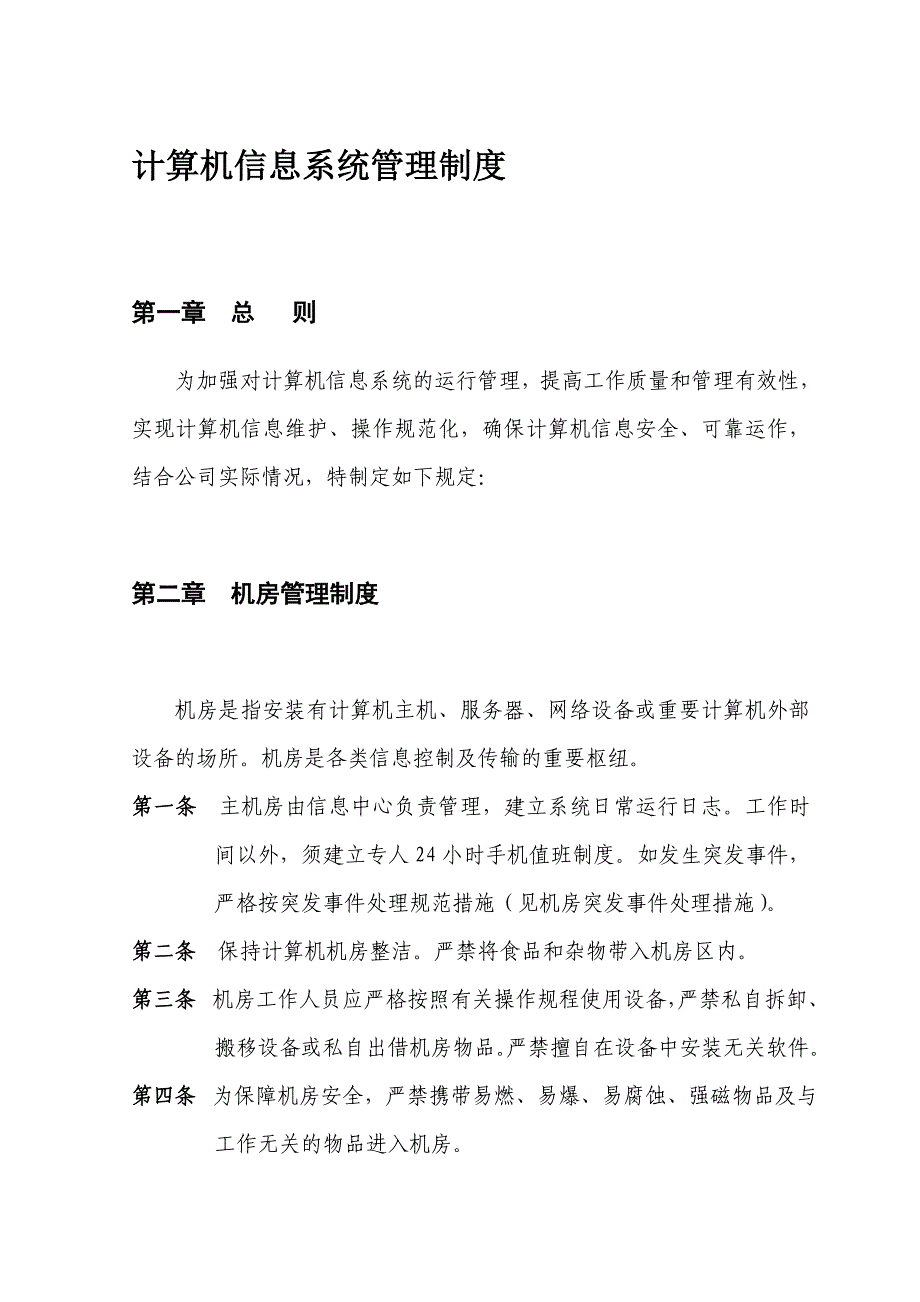 计算机信息系统管理制度
第一章 总 则
为加强对计算机信息系统的运行管理，提高工作质量和管理有效性，
实现计算机信息维护、操作规范化，确保计算机信息安全、可靠运作，
结合公司实际情况，特制定如下规定：
第二章 机房管理制度
机房是指安装有计算机主机、服务器、网络设备或重要计算机外部
设备的场所。机房是各类信息控制及传输的重要枢纽。
第一条 主机房由信息中心负责管理，建立系统日常运行日志。工作时
间以外，须建立专人 24 小时手机值班制度。如发生突发事件，
严格按突发事件处理规范措施（见机房突发事件处理措施）。
第二条 保持计算机机房整洁。严禁将食品和杂物带入机房区内。
第三条 机房工作人员应严格按照有关操作规程使用设备，严禁私自拆卸、
搬移设备或私自出借机房物品。严禁擅自在设备中安装无关软件。
第四条 为保障机房安全，严禁携带易燃、易爆、易腐蚀、强磁物品及与
工作无关的物品进入机房。